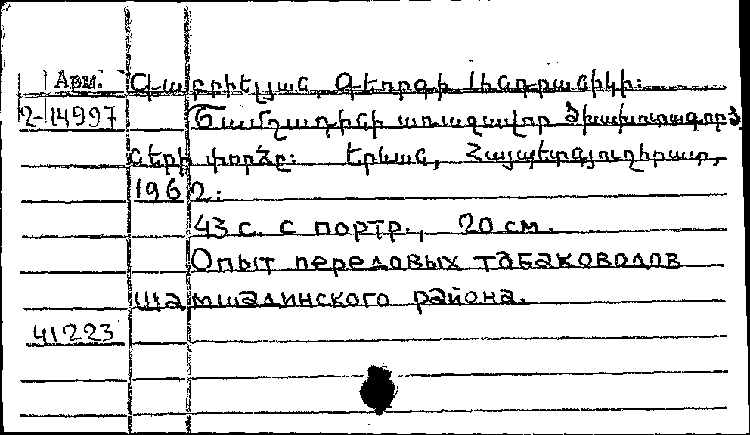 Арм. Գաբրիելյան, Գևորգի Անդրանիկի:
2-14997 Շամշադինի առաջավոր ծխախոտագործ
ների փորձը: Երևան, Հայպետգյուղհրատ,
1962:
43 с. с портр., 20 см.
Опыт передовых табаководов
Шамшадинского района.
41223